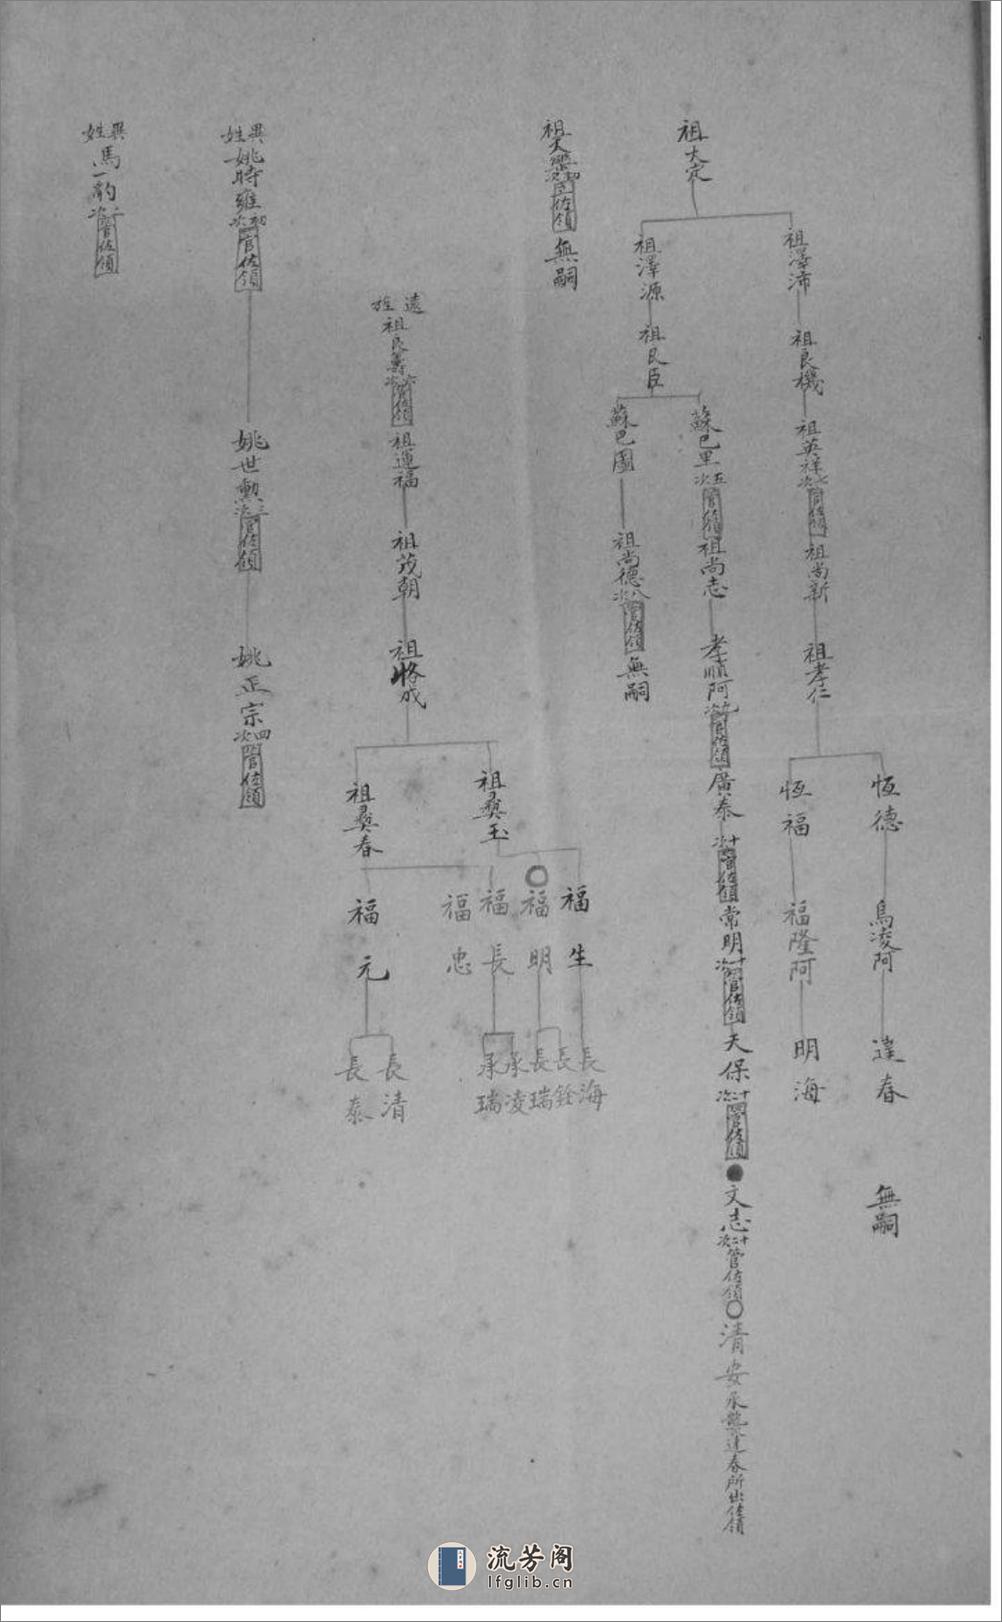 祖大定
祖澤沛
祖良機
祖英祥 七次管佐領
祖尚新
祖孝仁
恆德
烏凌阿
達春
無嗣
恆福
福隆阿
明海
祖澤源
祖良臣
蘇巴里 五次管佐領
祖尚志
孝順阿 九次管佐領
廣泰 十次管佐領
常明 十一次管佐領
天保 十二次管佐領
文志 十三次管佐領
清安 承襲達春所出佐領
蘇巴圖
祖尚德 八次管佐領
無嗣
管佐領
無嗣
遠族
祖良 六次管佐領
祖運福
祖茂朝
祖恪成
祖彝玉
福生
長海
福明
長銓
長瑞
祖彝春
福長
承凌
承瑞
福忠
福元
長清
長泰
異姓
姚時雍 初次管佐領
姚世勲 三次管佐領
姚正宗 四次管佐領
異姓
馬一豹 二次管佐領
流芳阁
lfglib.cn